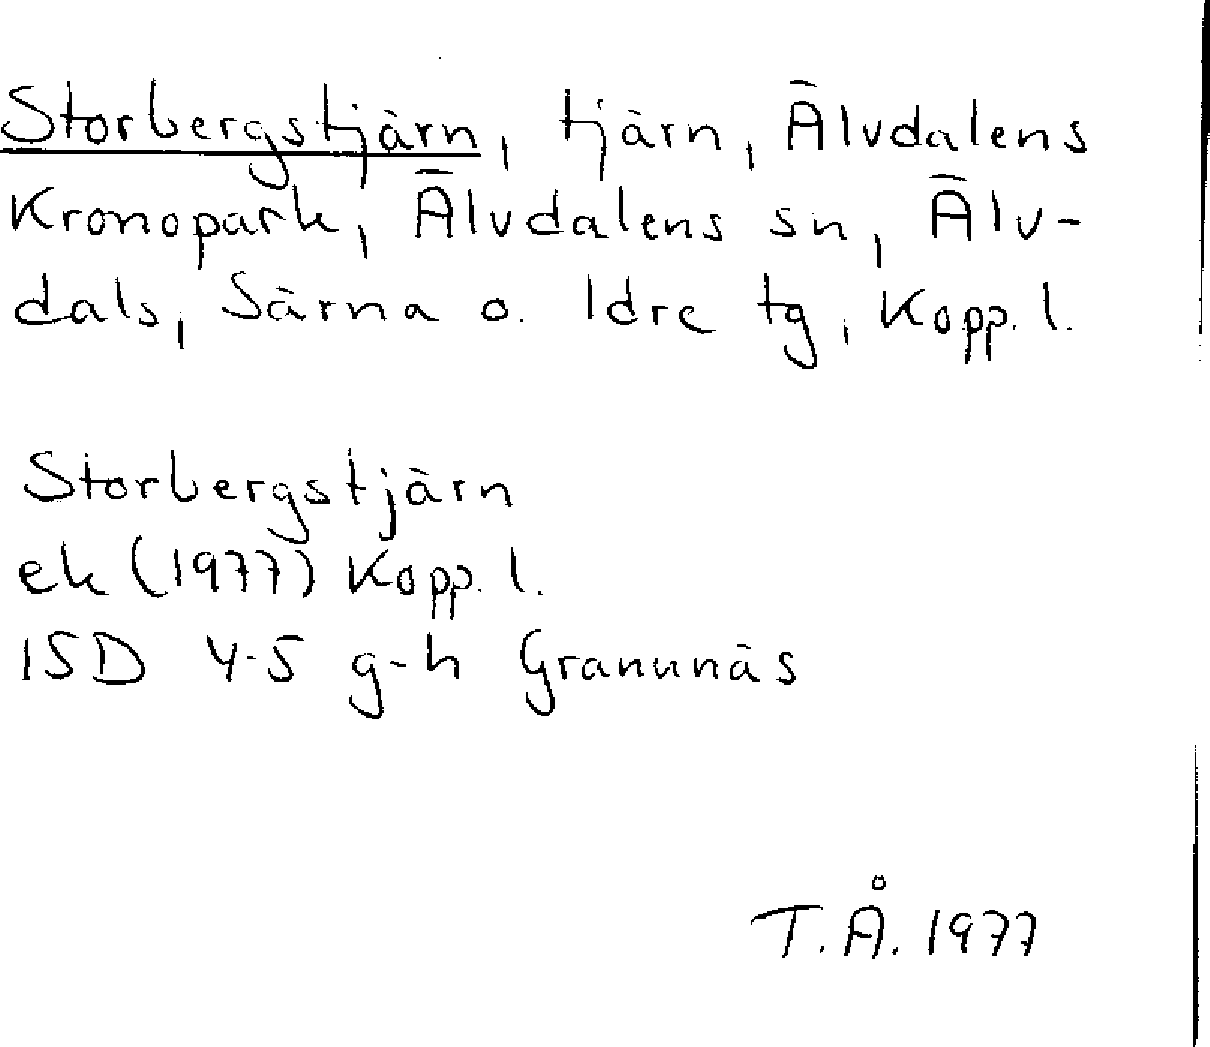 Storbergstjärn, tjärn, Älvdalens
Kronopark, Älvdalens sn, Älv-
dals, Särna o. Idre tg, Kopp. l.
Storbergstjärn
ek (1977) Kopp. l.
15D 4-5 g-h Granunäs
T.Å. 1977